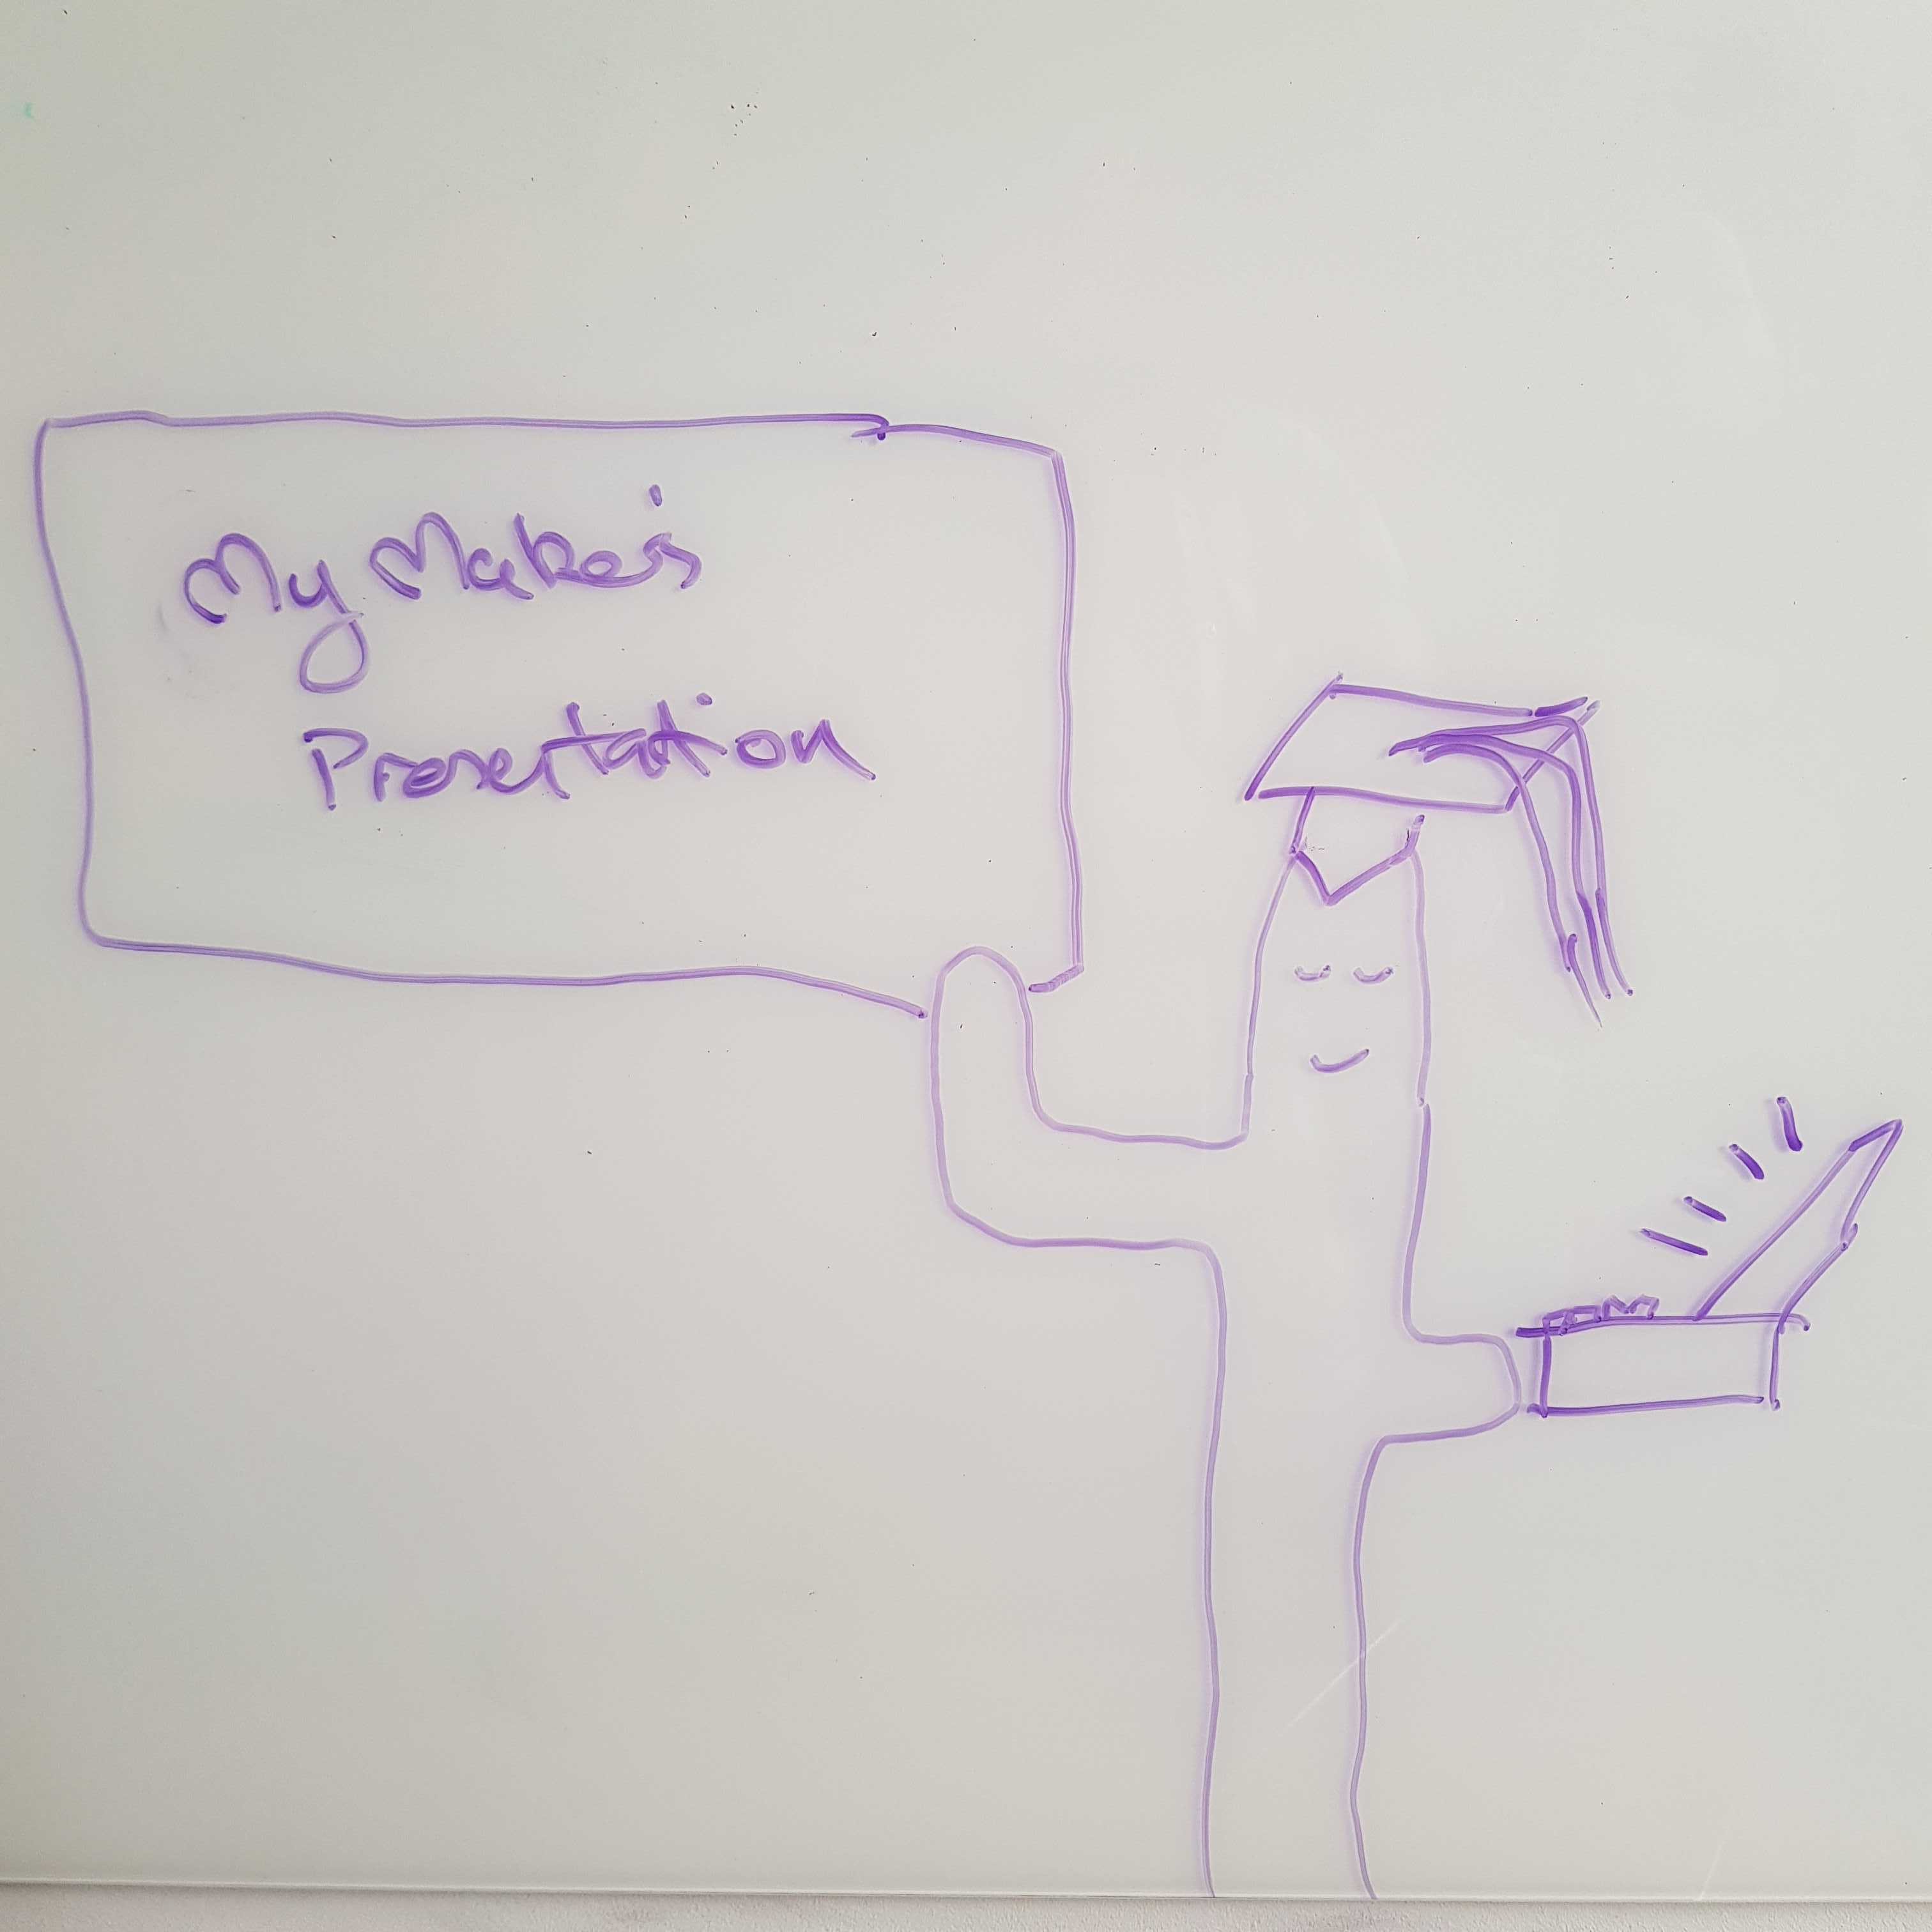 My Maker's
Presentation